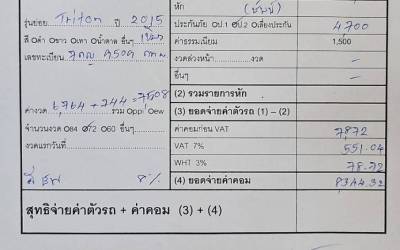 หัก (ชับบ์)
รุ่นย่อย Triton ปี 2015 ประกันภัย ป.1 ป.2 เลี่ยงประกัน 4700
สี ดำ ขาว เทา น้ำตาล อื่นๆ ค่าธรรมเนียม 1,500
เลขทะเบียน กทม งวดล่วงหน้า งวด -
อื่นๆ -
(2) รวมรายการหัก
ค่างวด 6,764 + 744 = 7508 รวม Oppi Oew (3) ยอดจ่ายค่าตัวรถ (1) – (2)
จำนวนงวด O84 O72 O60 อื่นๆ ค่าคอมก่อน VAT 7,872
งวดแรกวันที่ VAT 7% 551.04
WHT 3% 78.72
8% (4) ยอดจ่ายค่าคอม 8344.32
สุทธิจ่ายค่าตัวรถ + ค่าคอม (3) + (4)